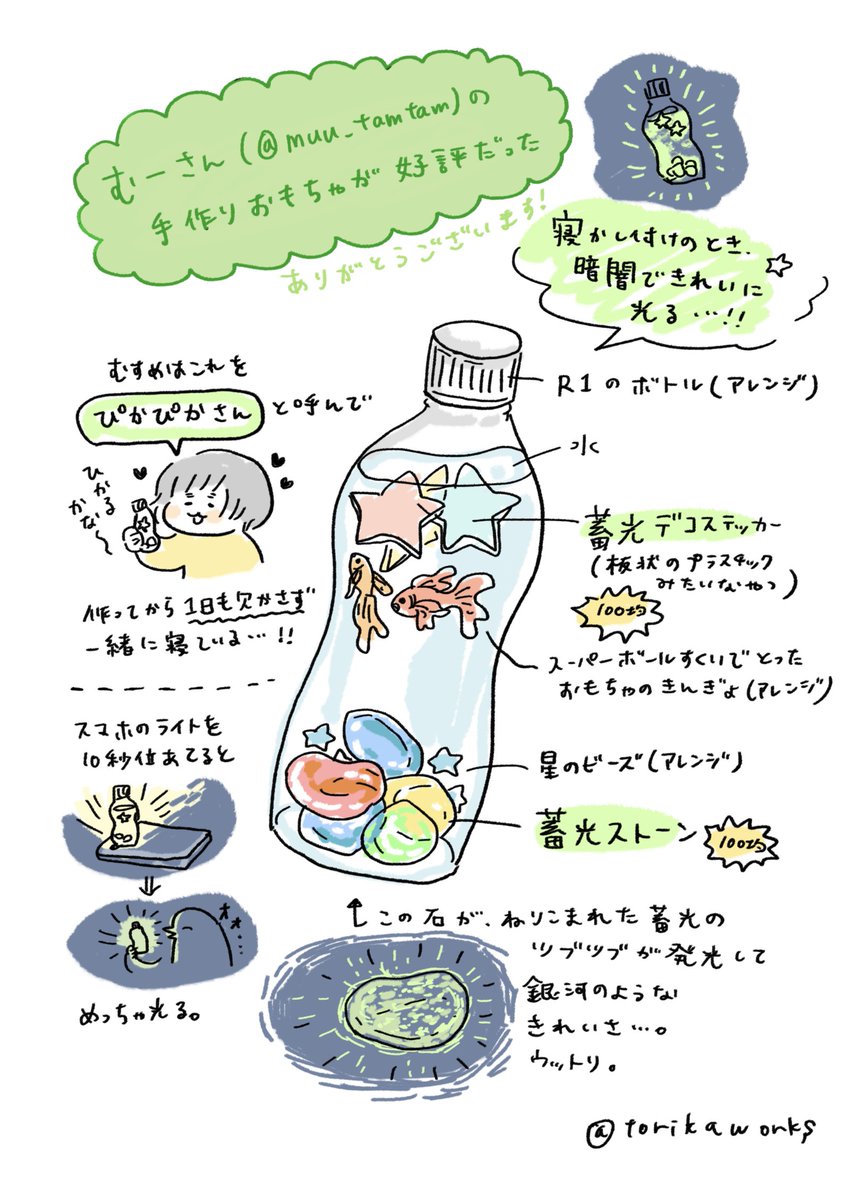 むーさん(@muu_tamtam)の
手作りおもちゃが好評だった
ありがとうございます!
寝かし付けのとき、
暗闇できれいに
光る…!!
むすめはこれを
ぴかぴかさん と呼んで
ひかる
かな〜
作ってから1日も欠かさず
一緒に寝ている…!!
R1のボトル(アレンジ)
水
蓄光デコステッカー
(板状のプラスチック
みたいなやつ)
100均
スーパーボールすくいでとった
おもちゃのきんぎょ(アレンジ)
星のビーズ(アレンジ)
蓄光ストーン
100均
スマホのライトを
10秒位あてると
オオ…
めっちゃ光る。
↑この石が、ねりこまれた蓄光の
ツブツブが発光して
銀河のような
きれいさ…。
ウットリ。
@torikaworks